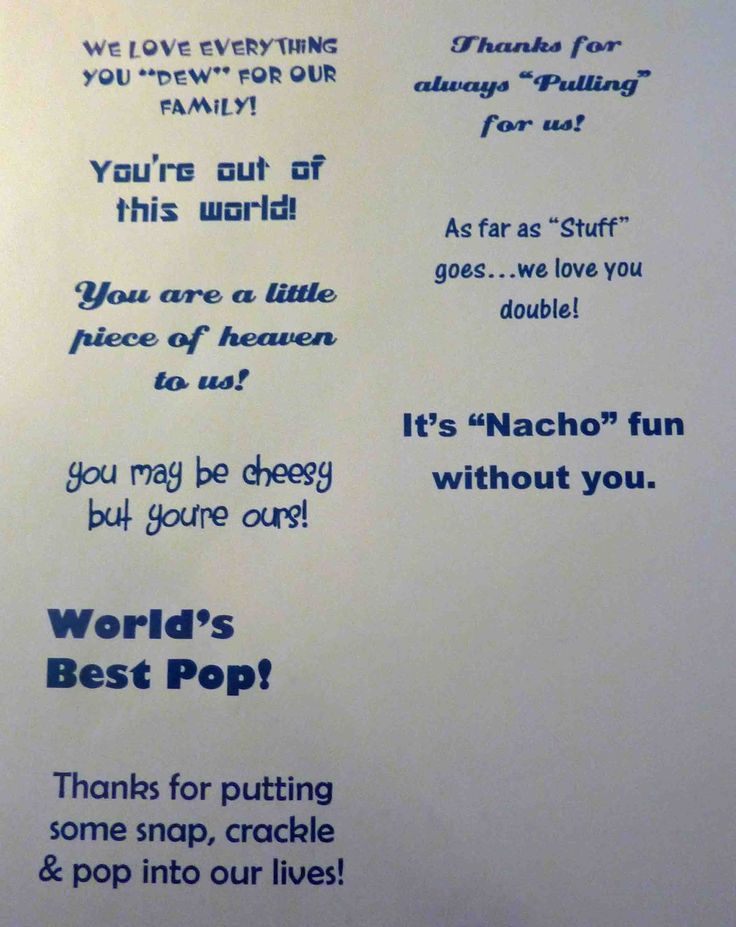 WE LOVE EVERYTHING
YOU "DEW" FOR OUR
FAMiLY!
You're out of
this world!
You are a little
piece of heaven
to us!
you may be cheesy
but you're ours!
World's
Best Pop!
Thanks for putting
some snap, crackle
& pop into our lives!
Thanks for
always "Pulling"
for us!
As far as "Stuff"
goes...we love you
double!
It's "Nacho" fun
without you.